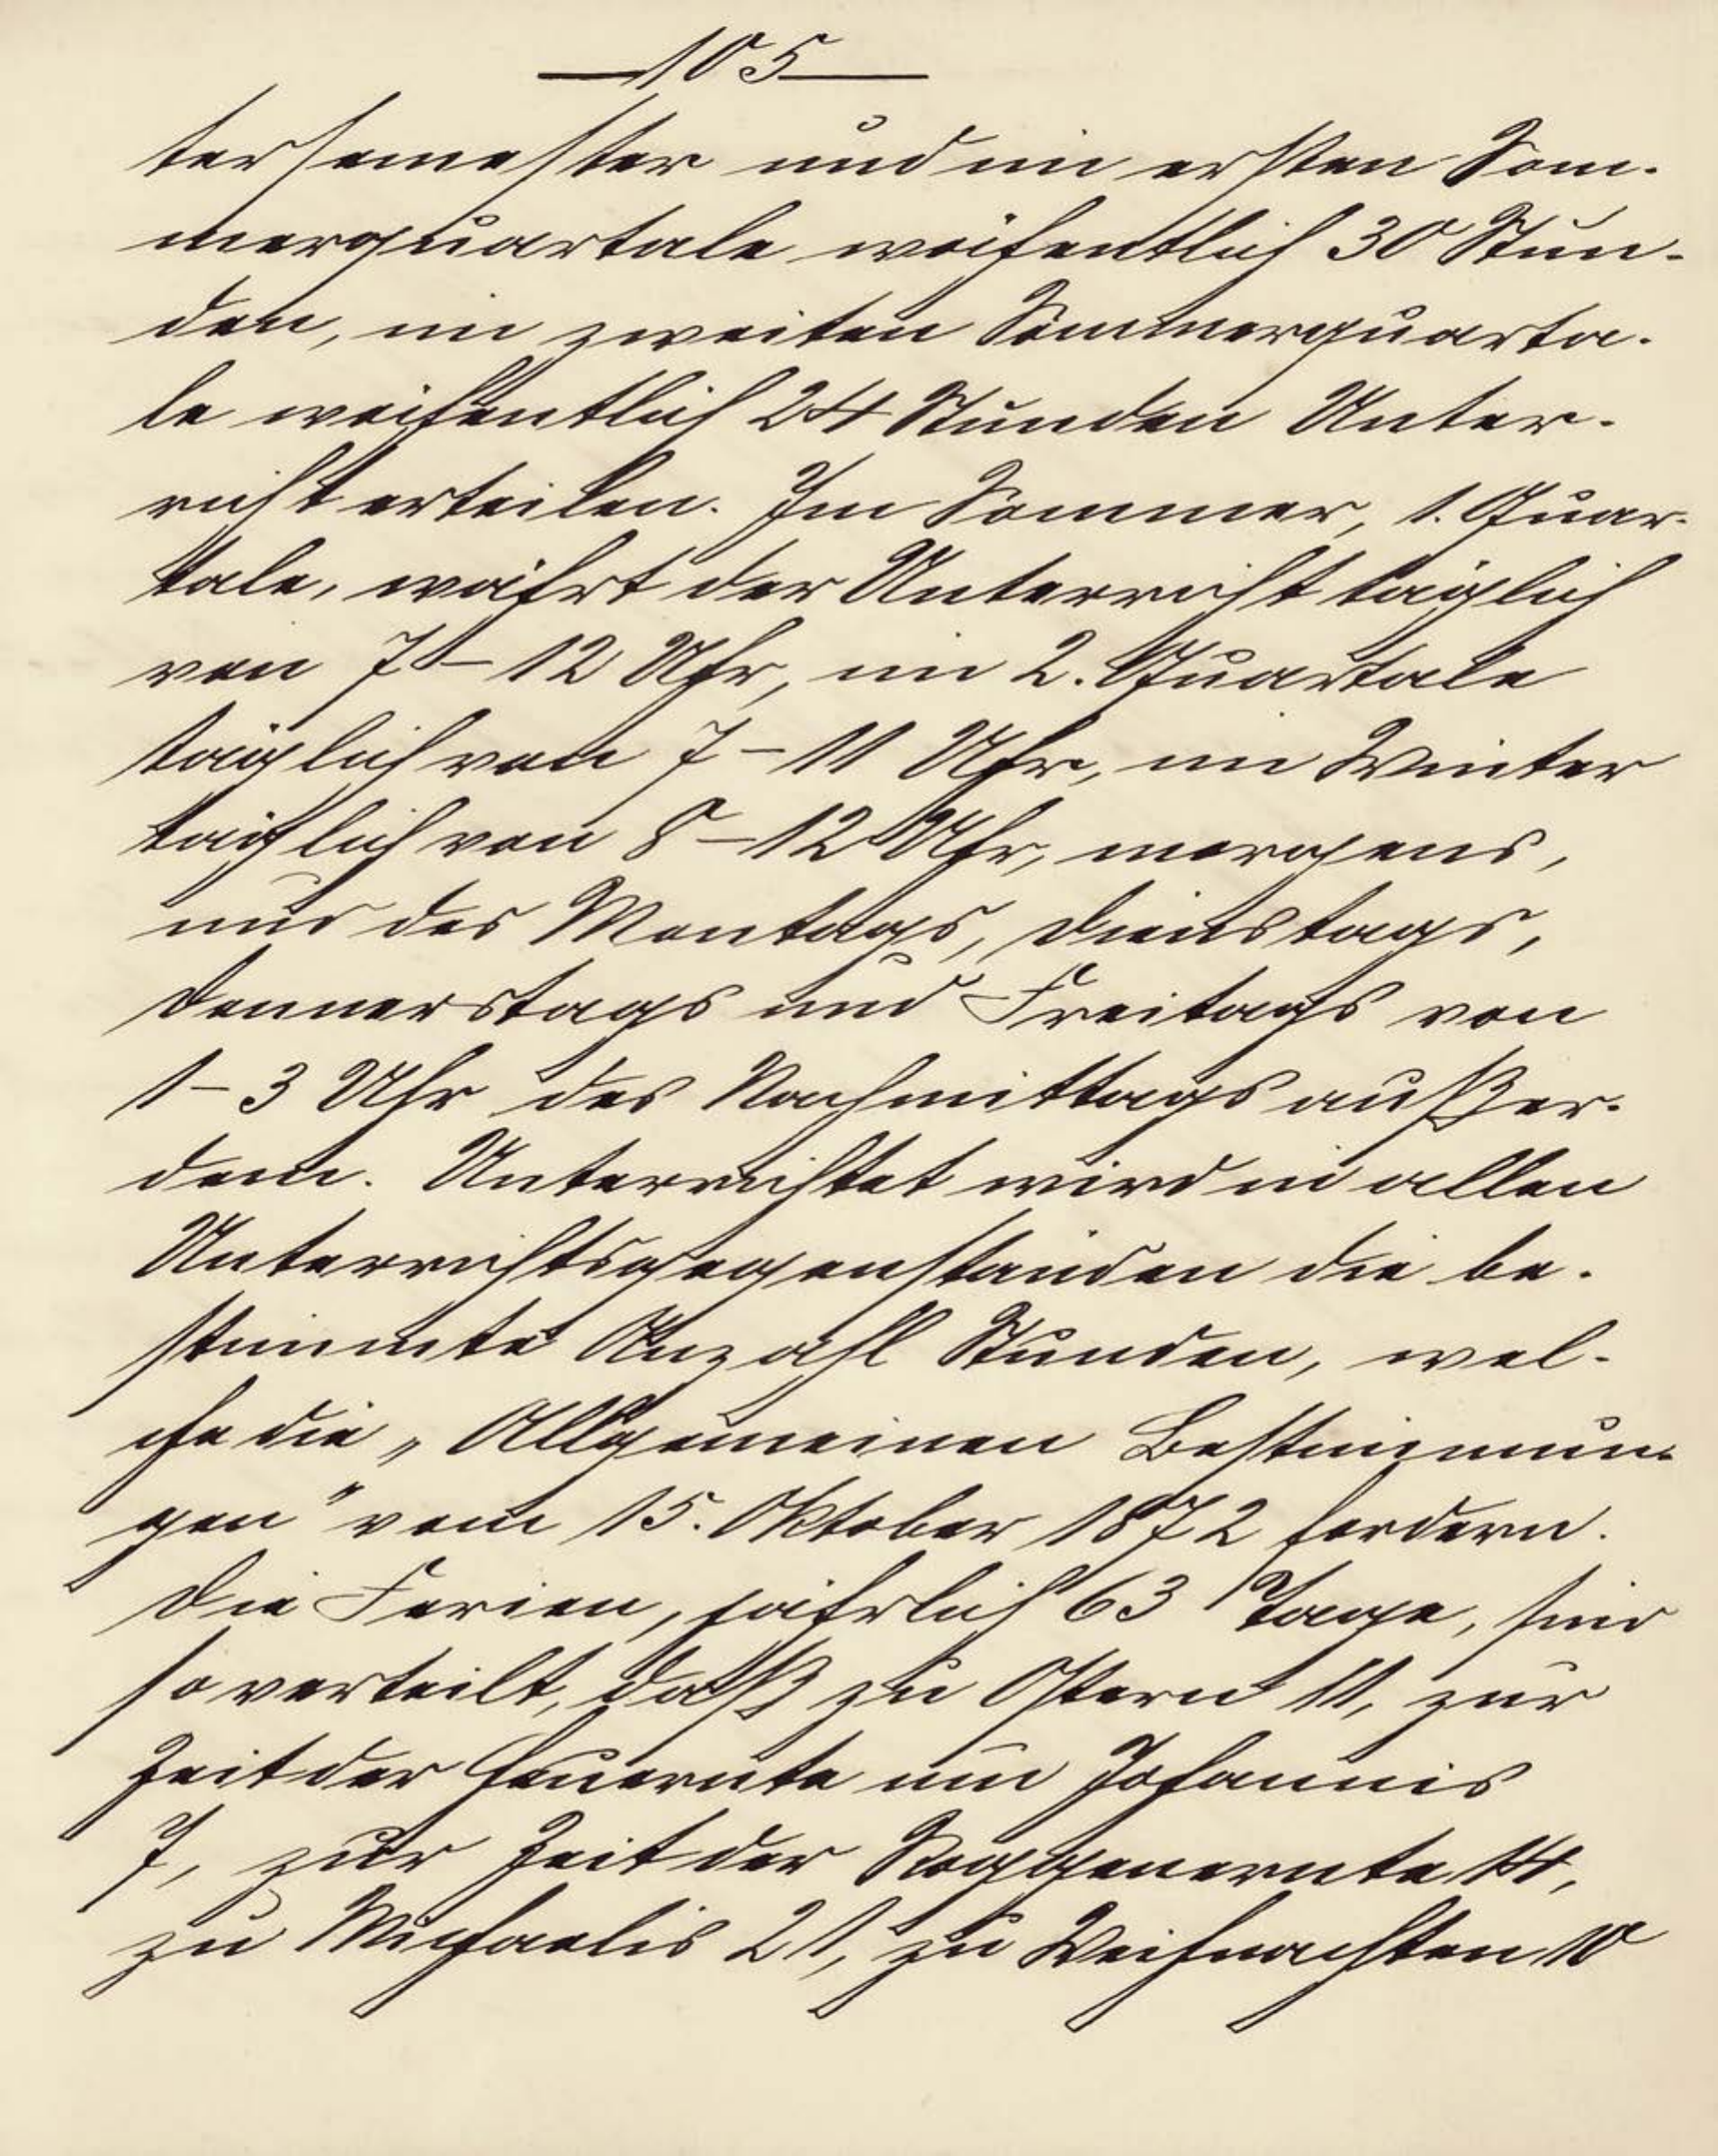 105
tersemester und im ersten Som-
merquartale wöchentlich 30 Stun-
den, im zweiten Sommerquarta-
le wöchentlich 24 Stunden Unter-
richt erteilen. Im Sommer, 1. Quar-
tale, währt der Unterricht täglich
von 7 – 12 Uhr, im 2. Quartale
täglich von 7 – 11 Uhr, im Winter
täglich von 8 – 12 Uhr, morgens,
und des Montags, Dienstags,
Donnerstags und Freitags von
1 – 3 Uhr des Nachmittags außer-
dem. Unterrichtet wird in allen
Unterrichtsgegenständen die be-
stimmte Anzahl Stunden, wel-
che die „Allgemeinen Bestimmun-
gen" vom 15. Oktober 1872 fordern.
Die Ferien, jährlich 63 Tage, sind
so verteilt, daß zu Ostern 11, zur
Zeit der Heuernte um Johannis
7, zur Zeit der Roggenernte 14,
zu Michaelis 21, zu Weihnachten 10